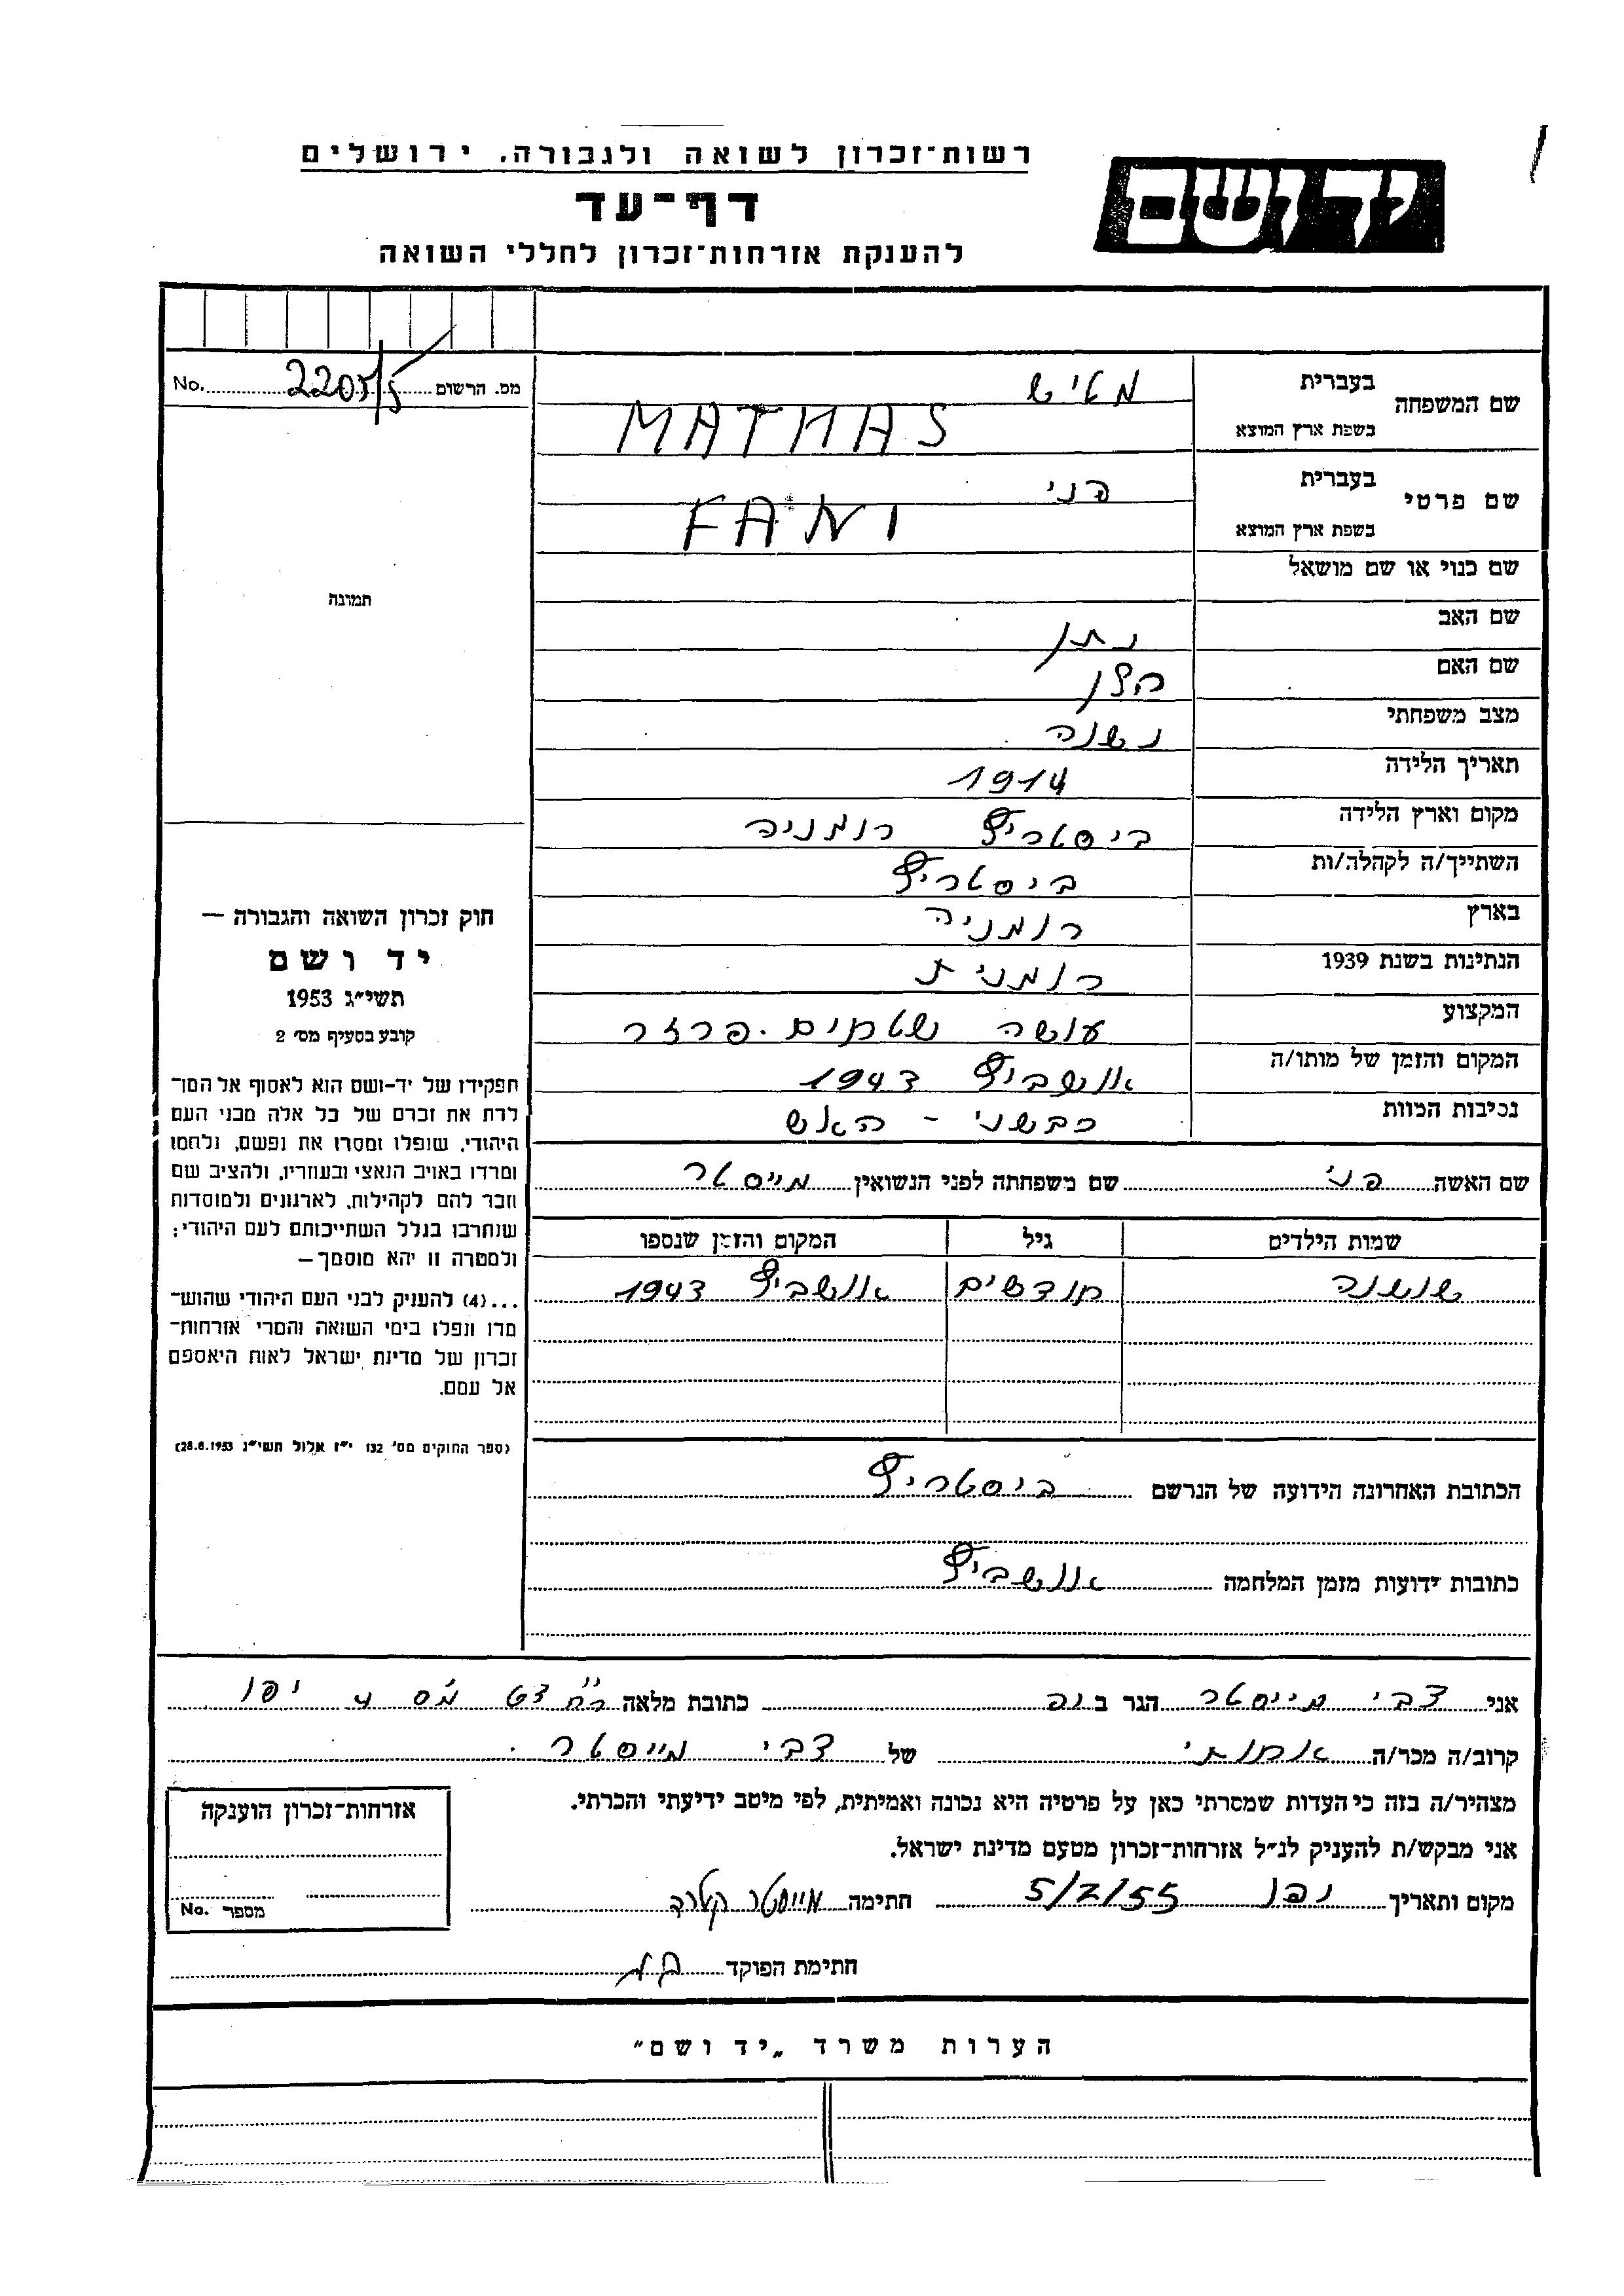 רשות־זכרון לשואה ולגבורה, ירושלים
יד ושם
דף־עד
להענקת אזרחות־זכרון לחללי השואה
מס. הרשום 2205/5 No.
שם המשפחה בעברית מטיש
בשפת ארץ המוצא MATHAS
שם פרטי בעברית פני
בשפת ארץ המוצא FANI
שם כנוי או שם מושאל
שם האב נתן
שם האם
מצב משפחתי נשואה
תאריך הלידה 1914
מקום וארץ הלידה ביסטריץ רומניה
השתייך/ה לקהלה/ות ביסטריץ
בארץ רומניה
הנתינות בשנת 1939 רומנית
המקצוע עושה
המקום והזמן של מותו/ה אושביץ 1943
נסיבות המוות כבשני - האש
שם האשה פני שם משפחתה לפני הנשואין מייסטר
שמות הילדים גיל המקום והזמן שנספו
שושנה חודשים אושביץ 1943
הכתובת האחרונה הידועה של הנרשם ביסטריץ
כתובות ידועות מזמן המלחמה אושביץ
תמונה
חוק זכרון השואה והגבורה —
יד ושם
תשי״ג 1953
קובע בסעיף מס׳ 2
תפקידו של יד-ושם הוא לאסוף אל המו־
לדת את זכרם של כל אלה מבני העם
היהודי, שנפלו ומסרו את נפשם, נלחמו
ומרדו באויב הנאצי ובעוזריו, ולהציב שם
וזכר להם לקהילות, לארגונים ולמוסדות
שנחרבו בגלל השתייכותם לעם היהודי;
ולמטרה זו יהא מוסמך —
...(4) להעניק לבני העם היהודי שהוש־
מדו ונפלו בימי השואה והמרי אזרחות־
זכרון של מדינת ישראל לאות היאספם
אל עמם.
(ספר החוקים מס׳ 132 י״ז אלול תשי״ג 28.8.1953)
אני צבי מייסטר הגר ב כתובת מלאה יפו
קרוב/ה מכר/ה אחותי של צבי מייסטר.
מצהיר/ה בזה כי העדות שמסרתי כאן על פרטיה היא נכונה ואמיתית, לפי מיטב ידיעתי והכרתי.
אני מבקש/ת להעניק לנ״ל אזרחות־זכרון מטעם מדינת ישראל.
מקום ותאריך יפו 5/7/55 חתימה מייסטר
חתימת הפוקד
אזרחות־זכרון הוענקה
מספר No.
הערות משרד „יד ושם״